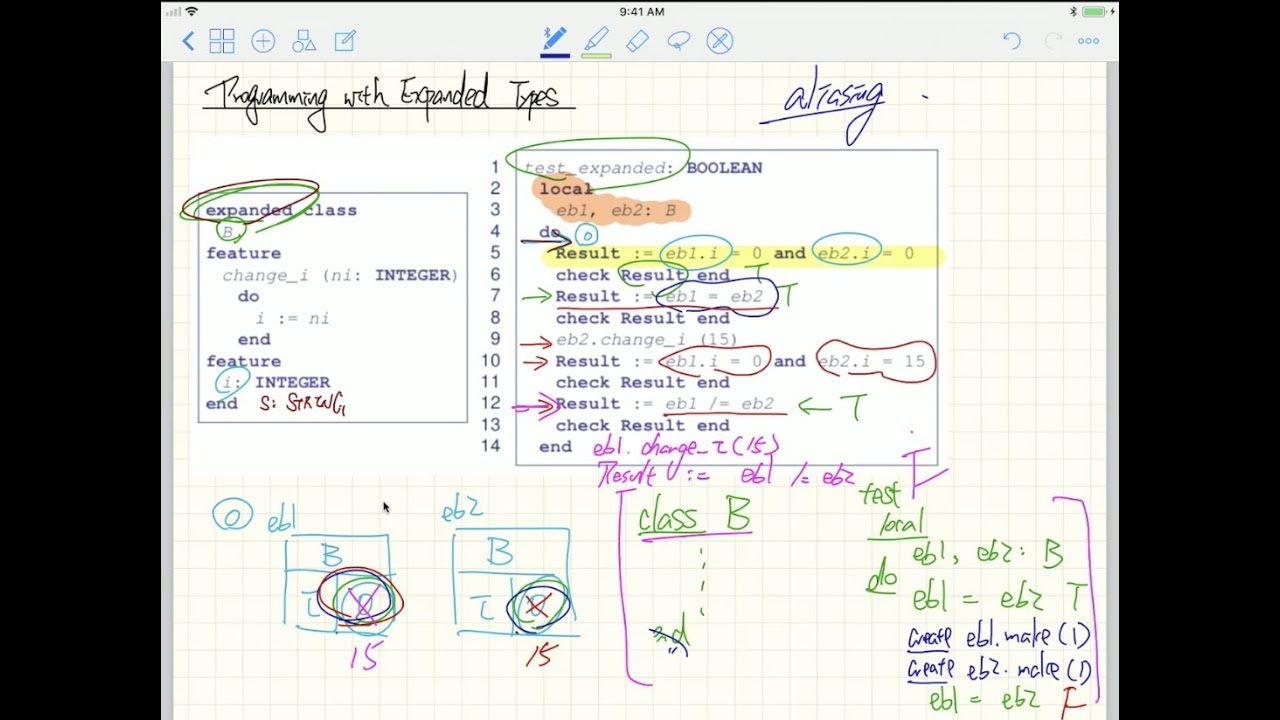 9:41 AM
Programming with Expanded Types
aliasing
expanded class
B
feature
change_i (ni: INTEGER)
do
i := ni
end
feature
i: INTEGER
end s: STRING
1 test_expanded: BOOLEAN
2 local
3 eb1, eb2: B
4 do 0
5 Result := eb1.i = 0 and eb2.i = 0
6 check Result end T
7 Result := eb1 = eb2 T
8 check Result end
9 eb2.change_i (15)
10 Result := eb1.i = 0 and eb2.i = 15
11 check Result end
12 Result := eb1 /= eb2 ← T
13 check Result end
14 end
eb1.change_i(15)
Result := eb1 /= eb2 F
0 eb1
B
i 0
15
eb2
B
i 0
15
class B
end
test
local
eb1, eb2: B
do
eb1 = eb2 T
create eb1.make(1)
create eb2.make(1)
eb1 = eb2 F